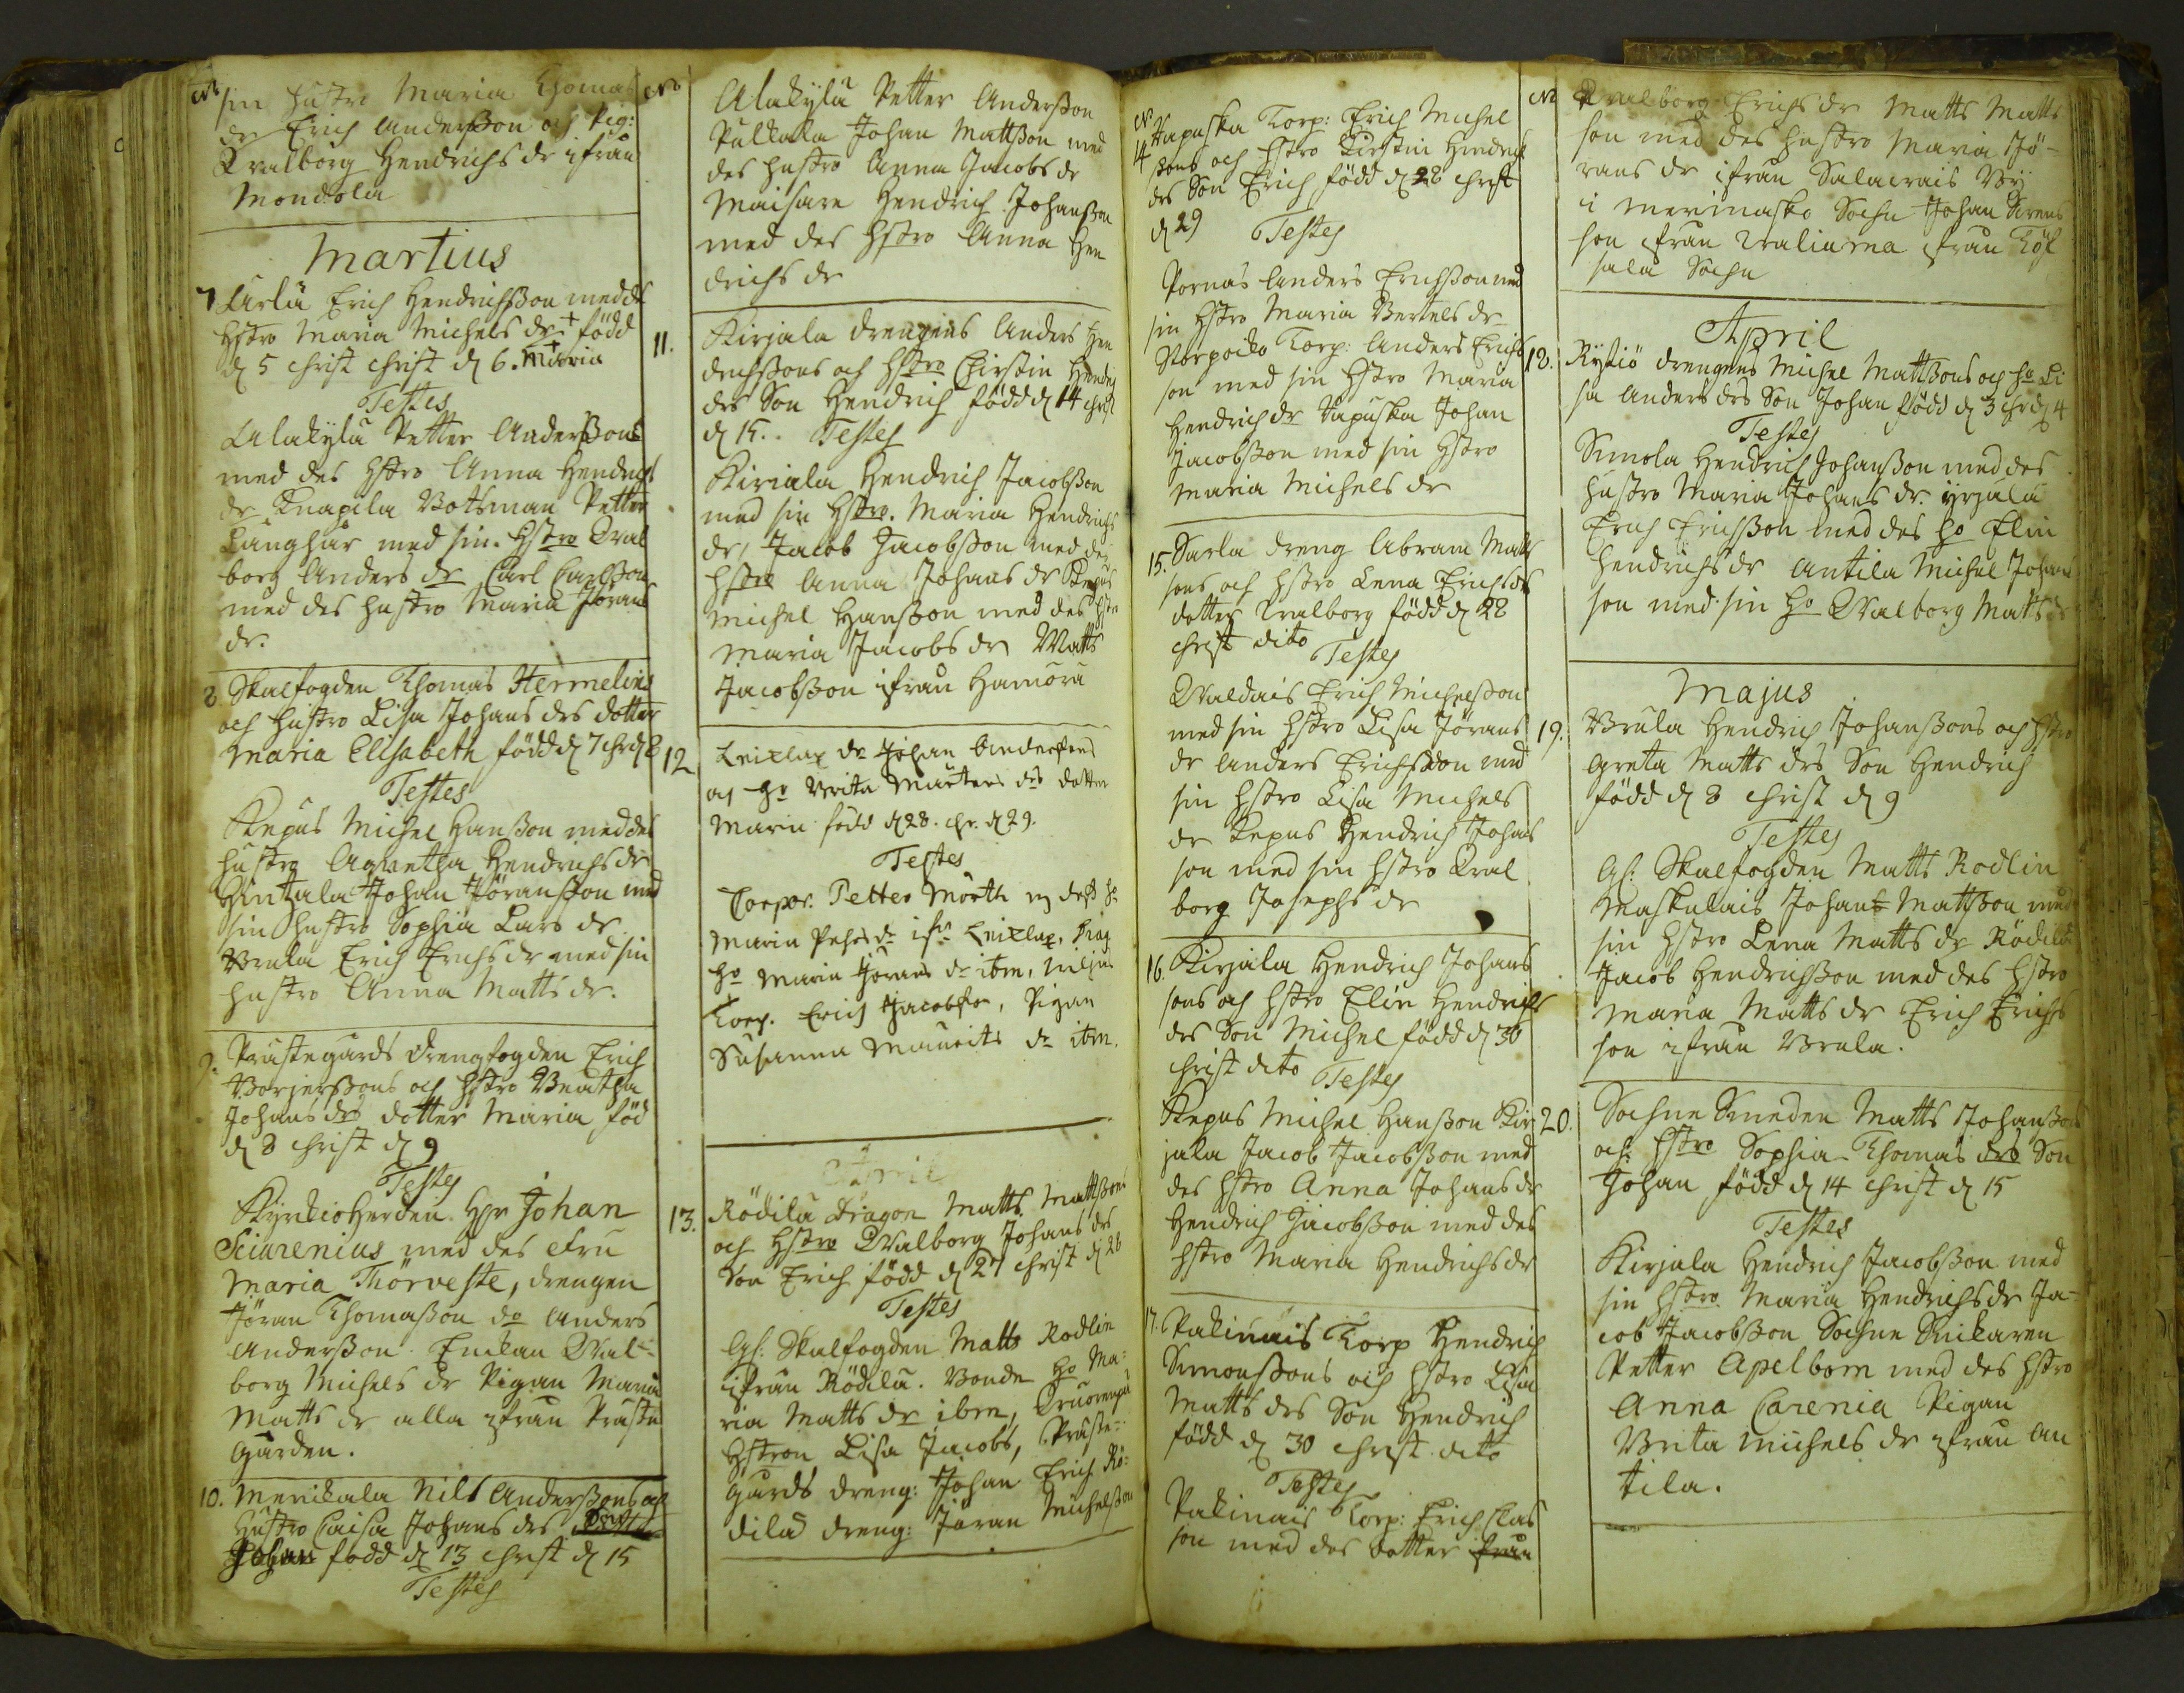 No
sin hustro Maria Thomas
dr Erich Andersson och Pig:
Walborg Hendrichs dr ifrån
Mondola
Martius
7 Erich Hendrichsson med des
hstro Maria Michels dr + född
d 5 christ christ d 6. Maria
Testes
Alakylä Petter Anderssons
med des hstro Anna Hendrichs
dr Knapila Botsman Petter
Långhår med sin hstro Wal
borg Anders dr Carl Carlsson
med des hustro Maria Jörans
dr.
8. Skalfogden Thomas Hermelins
och hustro Lisa Johans drs dotter
Maria Elisabeth född d 7 chr d 8
Testes
Repus Michel Hansson med des
hustro Agnetha Hendrichs dr
Hintzala Johan Jöransson med
sin hustro Sophia Lars dr
Urula Erich Erichs dr med sin
hustro Anna Matts dr.
9. Prästegårds drengfogden Erich
Börjerssons och hstro Beatha
Johans drs dotter Maria föd
d 8 christ d 9
Testes
Kyrkioherden Hr Johan
Sciarenius med des Fru
Maria Thörveste, drengen
Jöran Thomasson do Anders
Andersson. Enkan Wal-
borg Michels dr Pigan Maria
Matts dr alla ifrån Präste
gården.
10. Merikala Nils Anderssons och
hustro Caisa Johans drs
Johan född d 13 christ d 15
Testes
No
Alakylä Petter Andersson
Pukkala Johan Mattsson med
des hustro Anna Jacobs dr
Maisare Hendrich Johansson
med des hstro Anna Hen
drichs dr
11. Kirjala drengens Anders Hen
drichssons och hstro Christin Hendr
drs Son Hendrich född d 14 christ
d 15. Testes
Kiriala Hendrich Jacobsson
med sin hstro. Maria Hendrichs
dr, Jacob Jacobsson med des
hstro Anna Johans dr Repus
Michel Hansson med des hstro
Maria Jacobs dr Matts
Jacobsson ifrån Hamora
12 Leixlax dr Johan Andersons
och ho Brita Mårtens drs dotter
Maria född d 28. chr. d 29.
Testes
Corpor. Petter Mörth m dess ho
Maria dr ifr Leixlax, drag
ho Maria Jörans dr ibm,
Torp. Erich Jacobsson, Pigan
Susanna Maurits dr ibm.
April
13. Rödilä dragon Matts Mattssons
och hstro Walborg Johans drs
Son Erich född d 27 christ d 28
Testes
Gl: Skalfogden Matts Rodlin
ifrån Rödilä. Bonde ho Ma-
ria Matts dr ibm,
hstron Lisa Jacobs, Präste-
gårds dreng: Johan Erich Rö-
dilä dreng: Jöran Michelsson
No
14 Hapuska Torp: Erich Michel
sons och hstro Kirstin Hendrichs
drs Son Erich född d 28 christ
d 29 Testes
Pornäs Anders Erichsson med
sin hstro Maria Bertels dr
Norpoiko Torp: Anders Erichs
son med sin hstro Maria
Hendrich dr Hapuska Johan
Jacobsson med sin hstro
Maria Michels dr
15. Sarla dreng Abram Matts
sons och hstro Lena Erichs drs
dotter Walborg född d 28
christ dito
Testes
Waldais Erich Michelsson
med sin hstro Lisa Jörans
dr Anders Erichsson med
sin hstro Lisa Michels
dr Repus Hendrich Johans
son med sin hstro Wal
borg Josephs dr
16. Kirjala Hendrich Johans
sons och hstro Elin Hendrichs
drs Son Michel född d 30
christ dito Testes
Repus Michel Hansson Kir
jala Jacob Jacobsson med
des hstro Anna Johans dr
Hendrich Jacobsson med des
hstro Maria Hendrichs dr
17. Pakinais Torp Hendrich
Simonssons och hstro Lisa
Matts drs Son Hendrich
född d 30 christ dito
Testes
Pakinais Torp: Erich Clas
son med des dotter från
No
Walborg Erichs dr Matts Matts
son med des hustro Maria Jö-
rans dr ifrån Salavais By
i Merimasko Sochn Johan Sirens
son ifrån Waliama ifrån Töf
sala Sochn
April
18. Kytiö drengens Michel Mattssons och ho Li
sa Anders drs Son Johan född d 3 chr d 4
Testes
Simola Hendrich Johansson med des
hustro Maria Johans dr Yrjälä
Erich Erichsson med des ho Elin
Hendrichs dr Antila Michel Johans
son med sin ho Walborg Matts dr
Majus
19. Urula Hendrich Johanssons och hstro
Greta Matts drs Son Hendrich
född d 8 christ d 9
Testes
Gl: Skalfogden Matts Rodlin
Maskulais Johan Mattsson med
sin hstro Lena Matts dr Rödilä
Jacob Hendrichsson med des hstro
Maria Matts dr Erich Erichs
son ifrån Urula.
20. Sochne Smeden Matts Johanssons
och hstro Sophia Thomas drs Son
Johan född d 14 christ d 15
Testes
Kirjala Hendrich Jacobsson med
sin hstro Maria Hendrichs dr Ja-
cob Jacobsson Sochne Snikaren
Petter Apelbom med des hstro
Anna Carenia Pigan
Brita Michels dr ifrån An
tila.